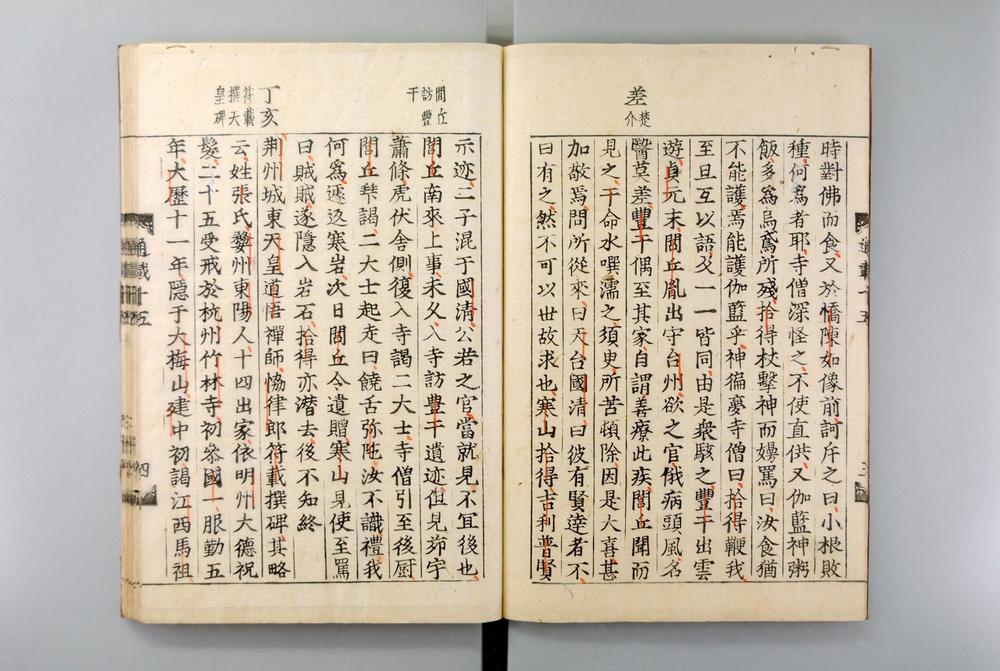 差 楚
介
時對佛而食又於橋陳如像前訶斥之曰小根敗
種何爲者耶寺僧深怪之不使直供又伽藍神粥
飯多爲烏鳶所殘拾得杖擊神而嫚罵曰汝食猶
不能護焉能護伽藍乎神徧夢寺僧曰拾得鞭我
至旦互以語父一一皆同由是衆駭之豐干出雲
遊貞元末閭丘胤出守台州欲之官俄病頭風名
醫莫差豐干偶至其家自謂善療此疾閭丘聞而
見之干命水噀濡之須臾所苦頓除因是大喜甚
加敬焉問所從來曰天台國清曰彼有賢達者不
曰有之然不可以世故求也寒山拾得吉利普賢
閭丘
訪豐
干
丁亥
符載
撰天
皇碑
示迹二子混于國清公若之官當就見不宜後也
閭丘南來上事未久入寺訪豐干遺迹但見茆宇
蕭條虎伏舍側復入寺謁二大士寺僧引至後厨
閭丘拜謁二大士起走曰饒舌弥陁汝不識禮我
何爲遽返寒岩次日閭丘令遺贈寒山見使至罵
曰賊賊遂隱入岩石拾得亦潛去後不知終
荆州城東天皇道悟禪師恊律郎符載撰碑其略
云姓張氏婺州東陽人十四出家依明州大德祝
髮二十五受戒於杭州竹林寺初叅國一服勤五
年大曆十一年隱于大梅山建中初謁江西馬祖
通載十五
四
通載十五
三